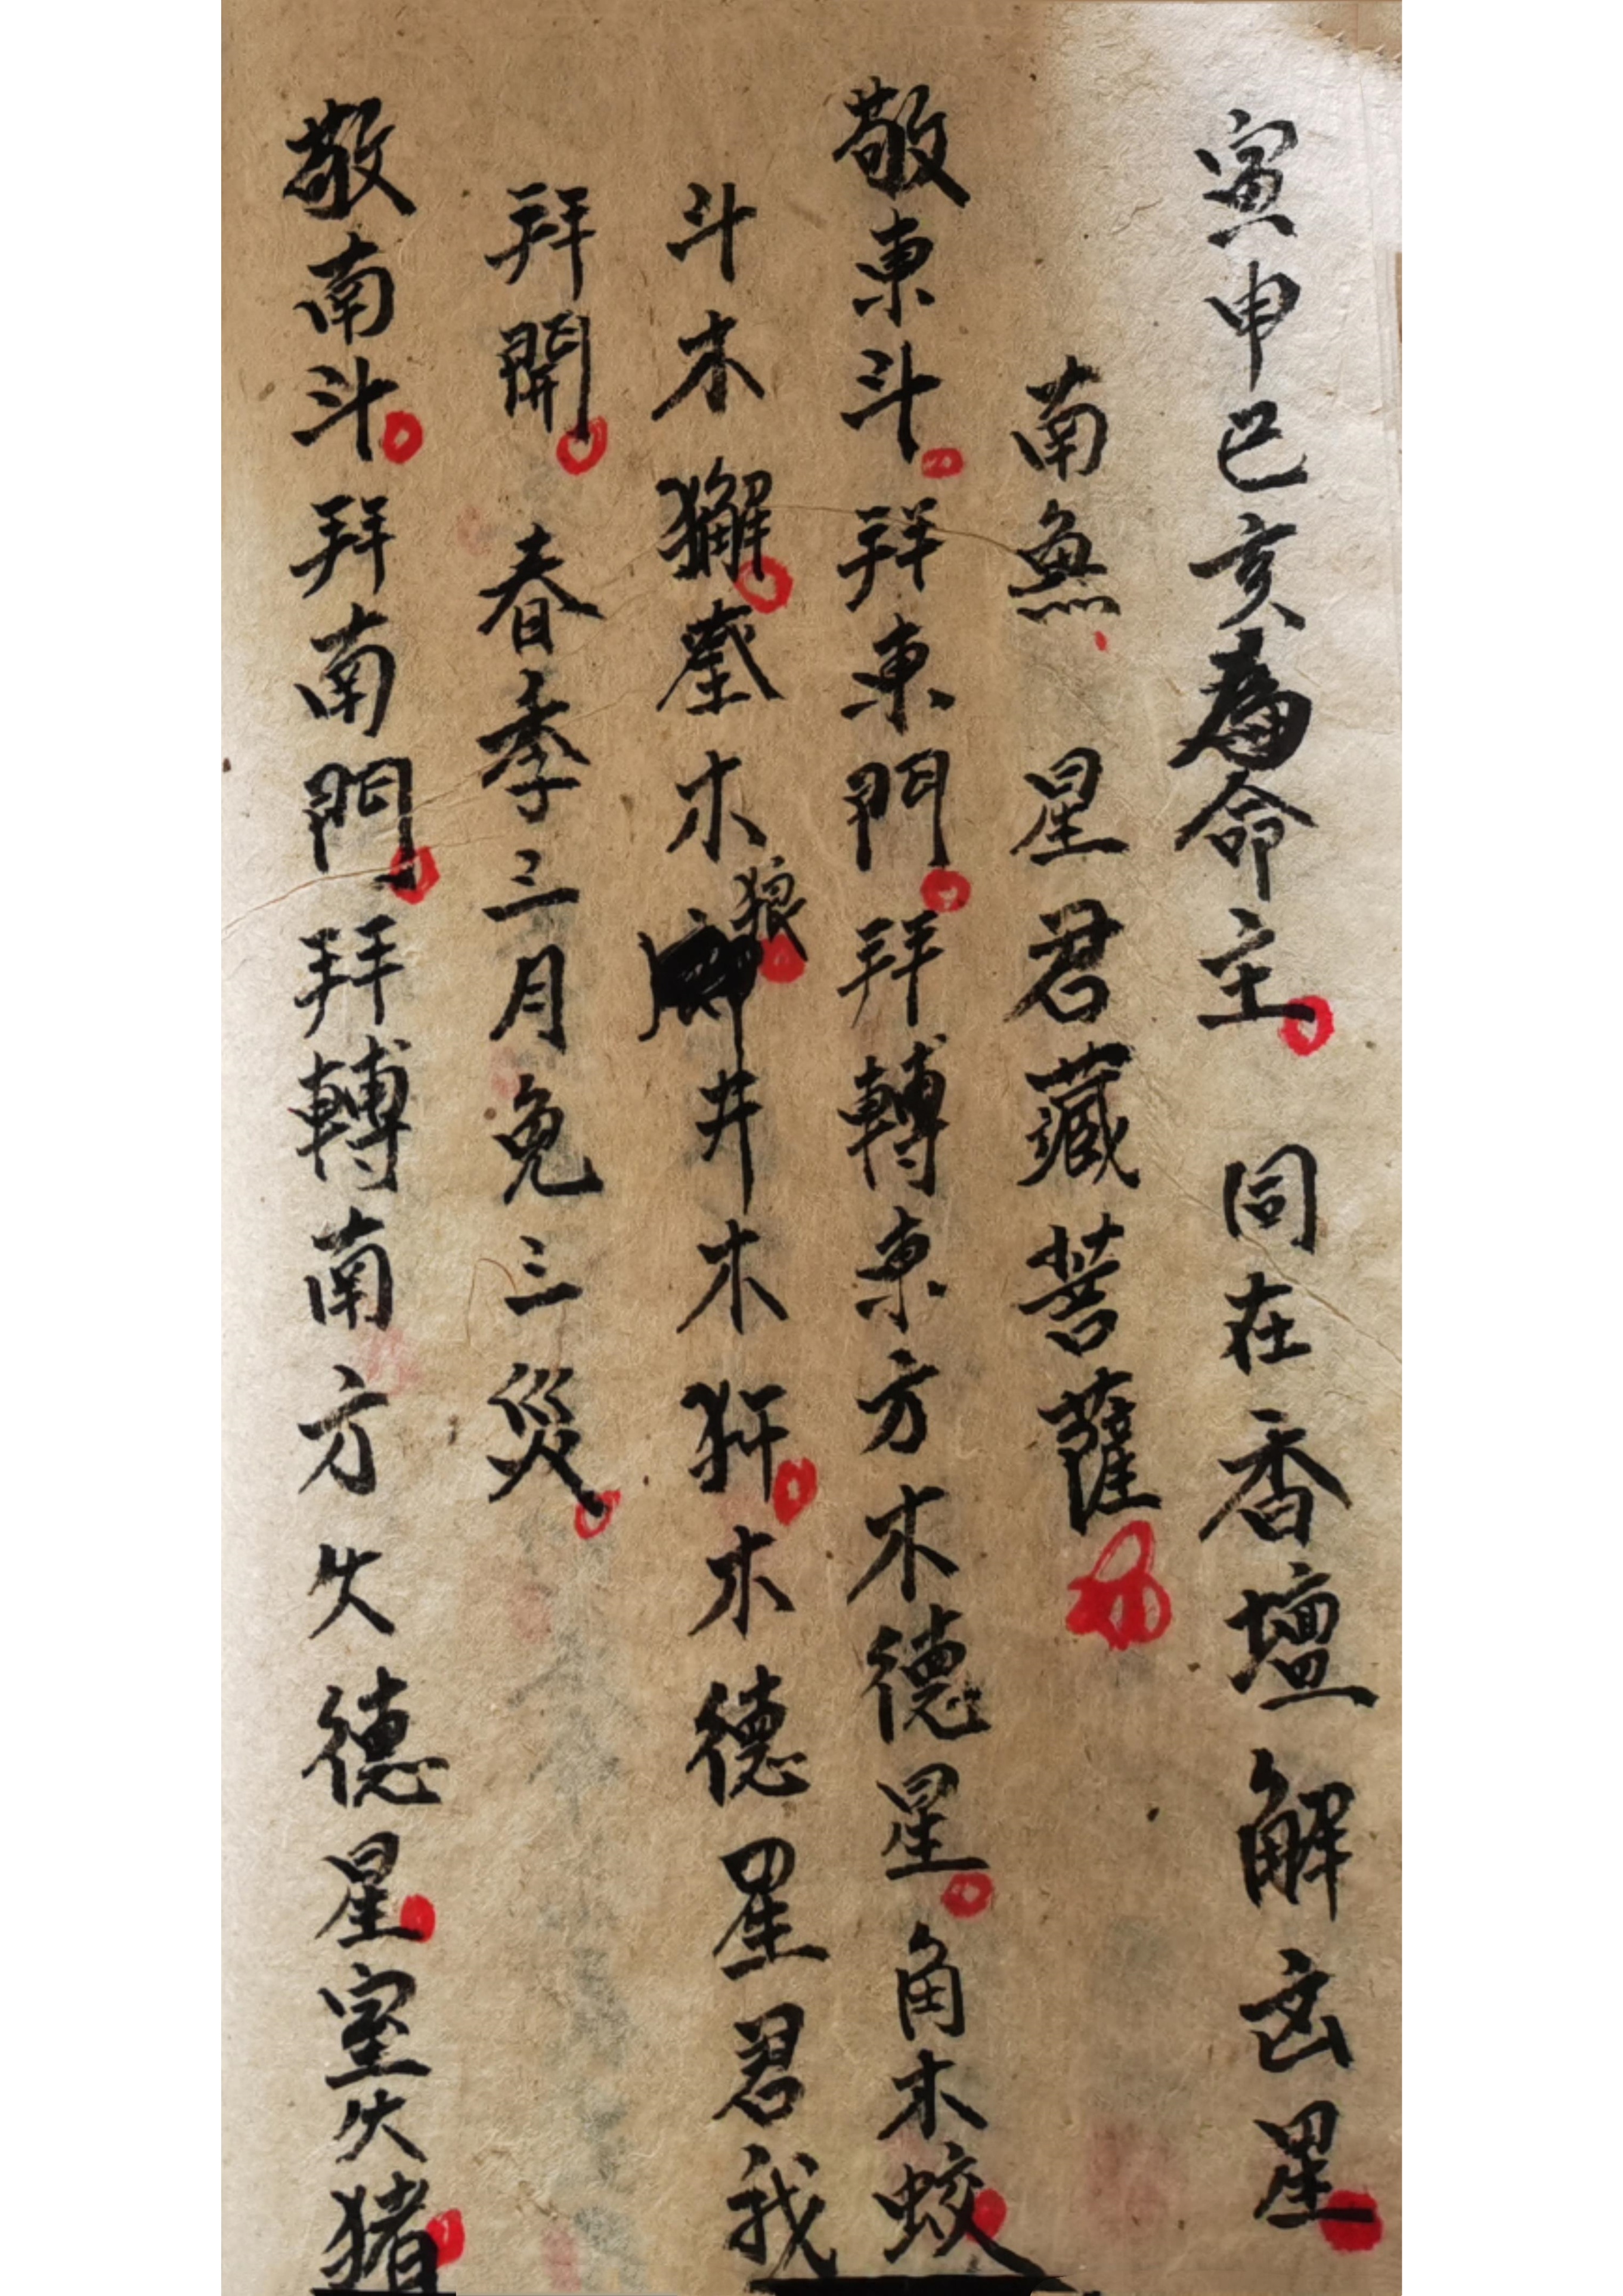 寅申巳亥為命主同在香壇解凶星
南無星君藏菩薩
敬東斗拜東門拜轉東方木德星角木蛟
斗木獬奎木狼井木犴木德星君我
拜開春季三月免三災
敬南斗拜南門拜轉南方火德星室火猪